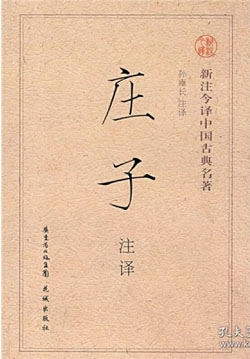 新注今译中国古典名著
孙雍长注译
庄子
注译
广东省出版集团
花城出版社